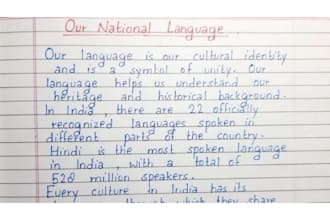 Our National Language
Our language is our cultural identity
and is a symbol of unity. Our
language helps us understand our
heritage and historical background.
In India, there are 22 officially
recognized languages spoken in
different parts of the country.
Hindi is the most spoken language
in India, with a total of
528 million speakers.
Every culture in India has its
through which they share